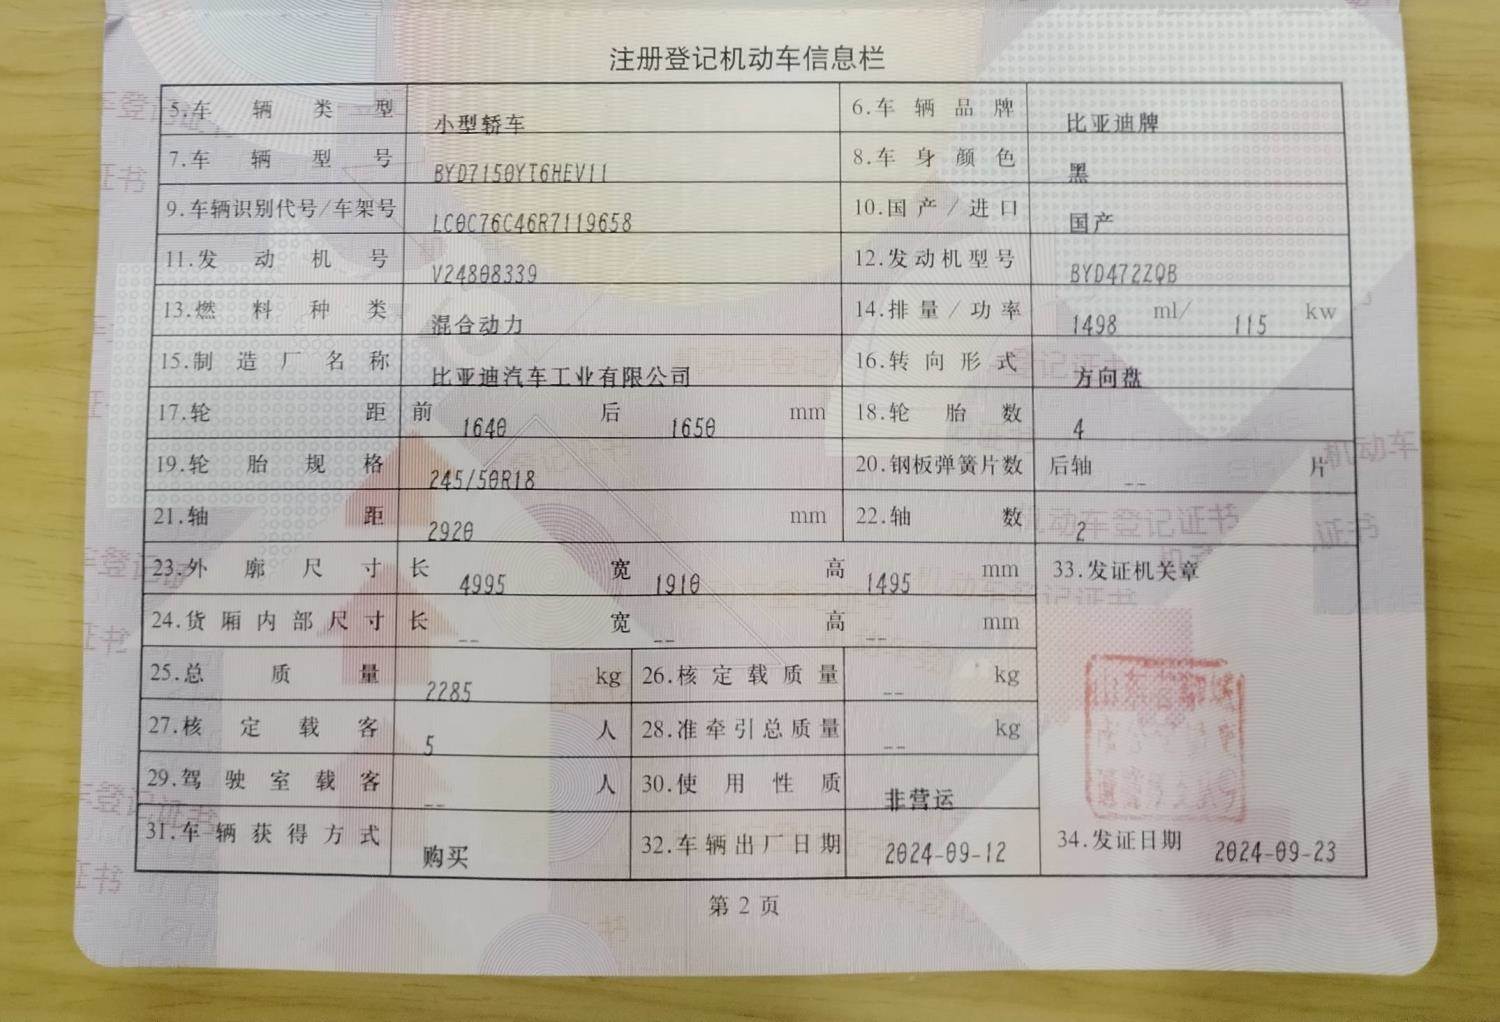 注册登记机动车信息栏
5.车辆类型 小型轿车 6.车辆品牌 比亚迪牌
7.车辆型号 BYD7150YT6HEV11 8.车身颜色 黑
9.车辆识别代号/车架号 LC0C76C46R7119658 10.国产/进口 国产
11.发动机号 V24808339 12.发动机型号 BYD472ZQB
13.燃料种类 混合动力 14.排量/功率 1498 ml/ 115 kw
15.制造厂名称 比亚迪汽车工业有限公司 16.转向形式 方向盘
17.轮距 前 1640 后 1650 mm 18.轮胎数 4
19.轮胎规格 245/50R18 20.钢板弹簧片数 后轴 -- 片
21.轴距 2920 mm 22.轴数 2
23.外廓尺寸 长 4995 宽 1910 高 1495 mm 33.发证机关章
24.货厢内部尺寸 长 -- 宽 -- 高 -- mm
25.总质量 2285 kg 26.核定载质量 -- kg
27.核定载客 5 人 28.准牵引总质量 -- kg
29.驾驶室载客 -- 人 30.使用性质 非营运
31.车辆获得方式 购买 32.车辆出厂日期 2024-09-12 34.发证日期 2024-09-23
第 2 页